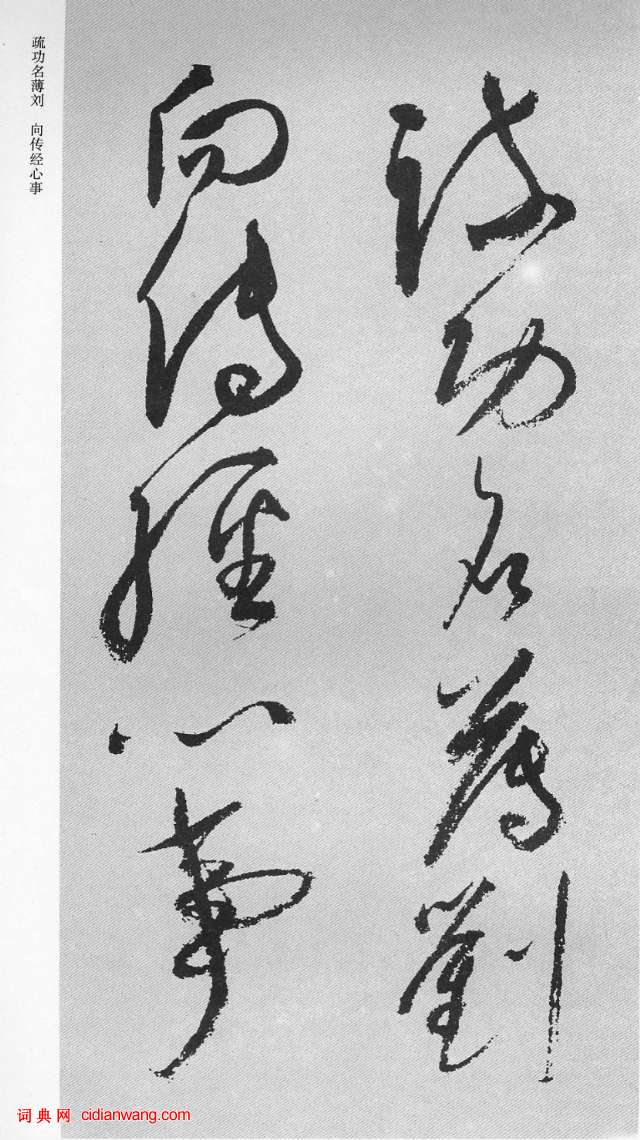 疏功名薄劉
向傳經心事
疏功名薄刘 向传经心事
词典网 cidianwang.com